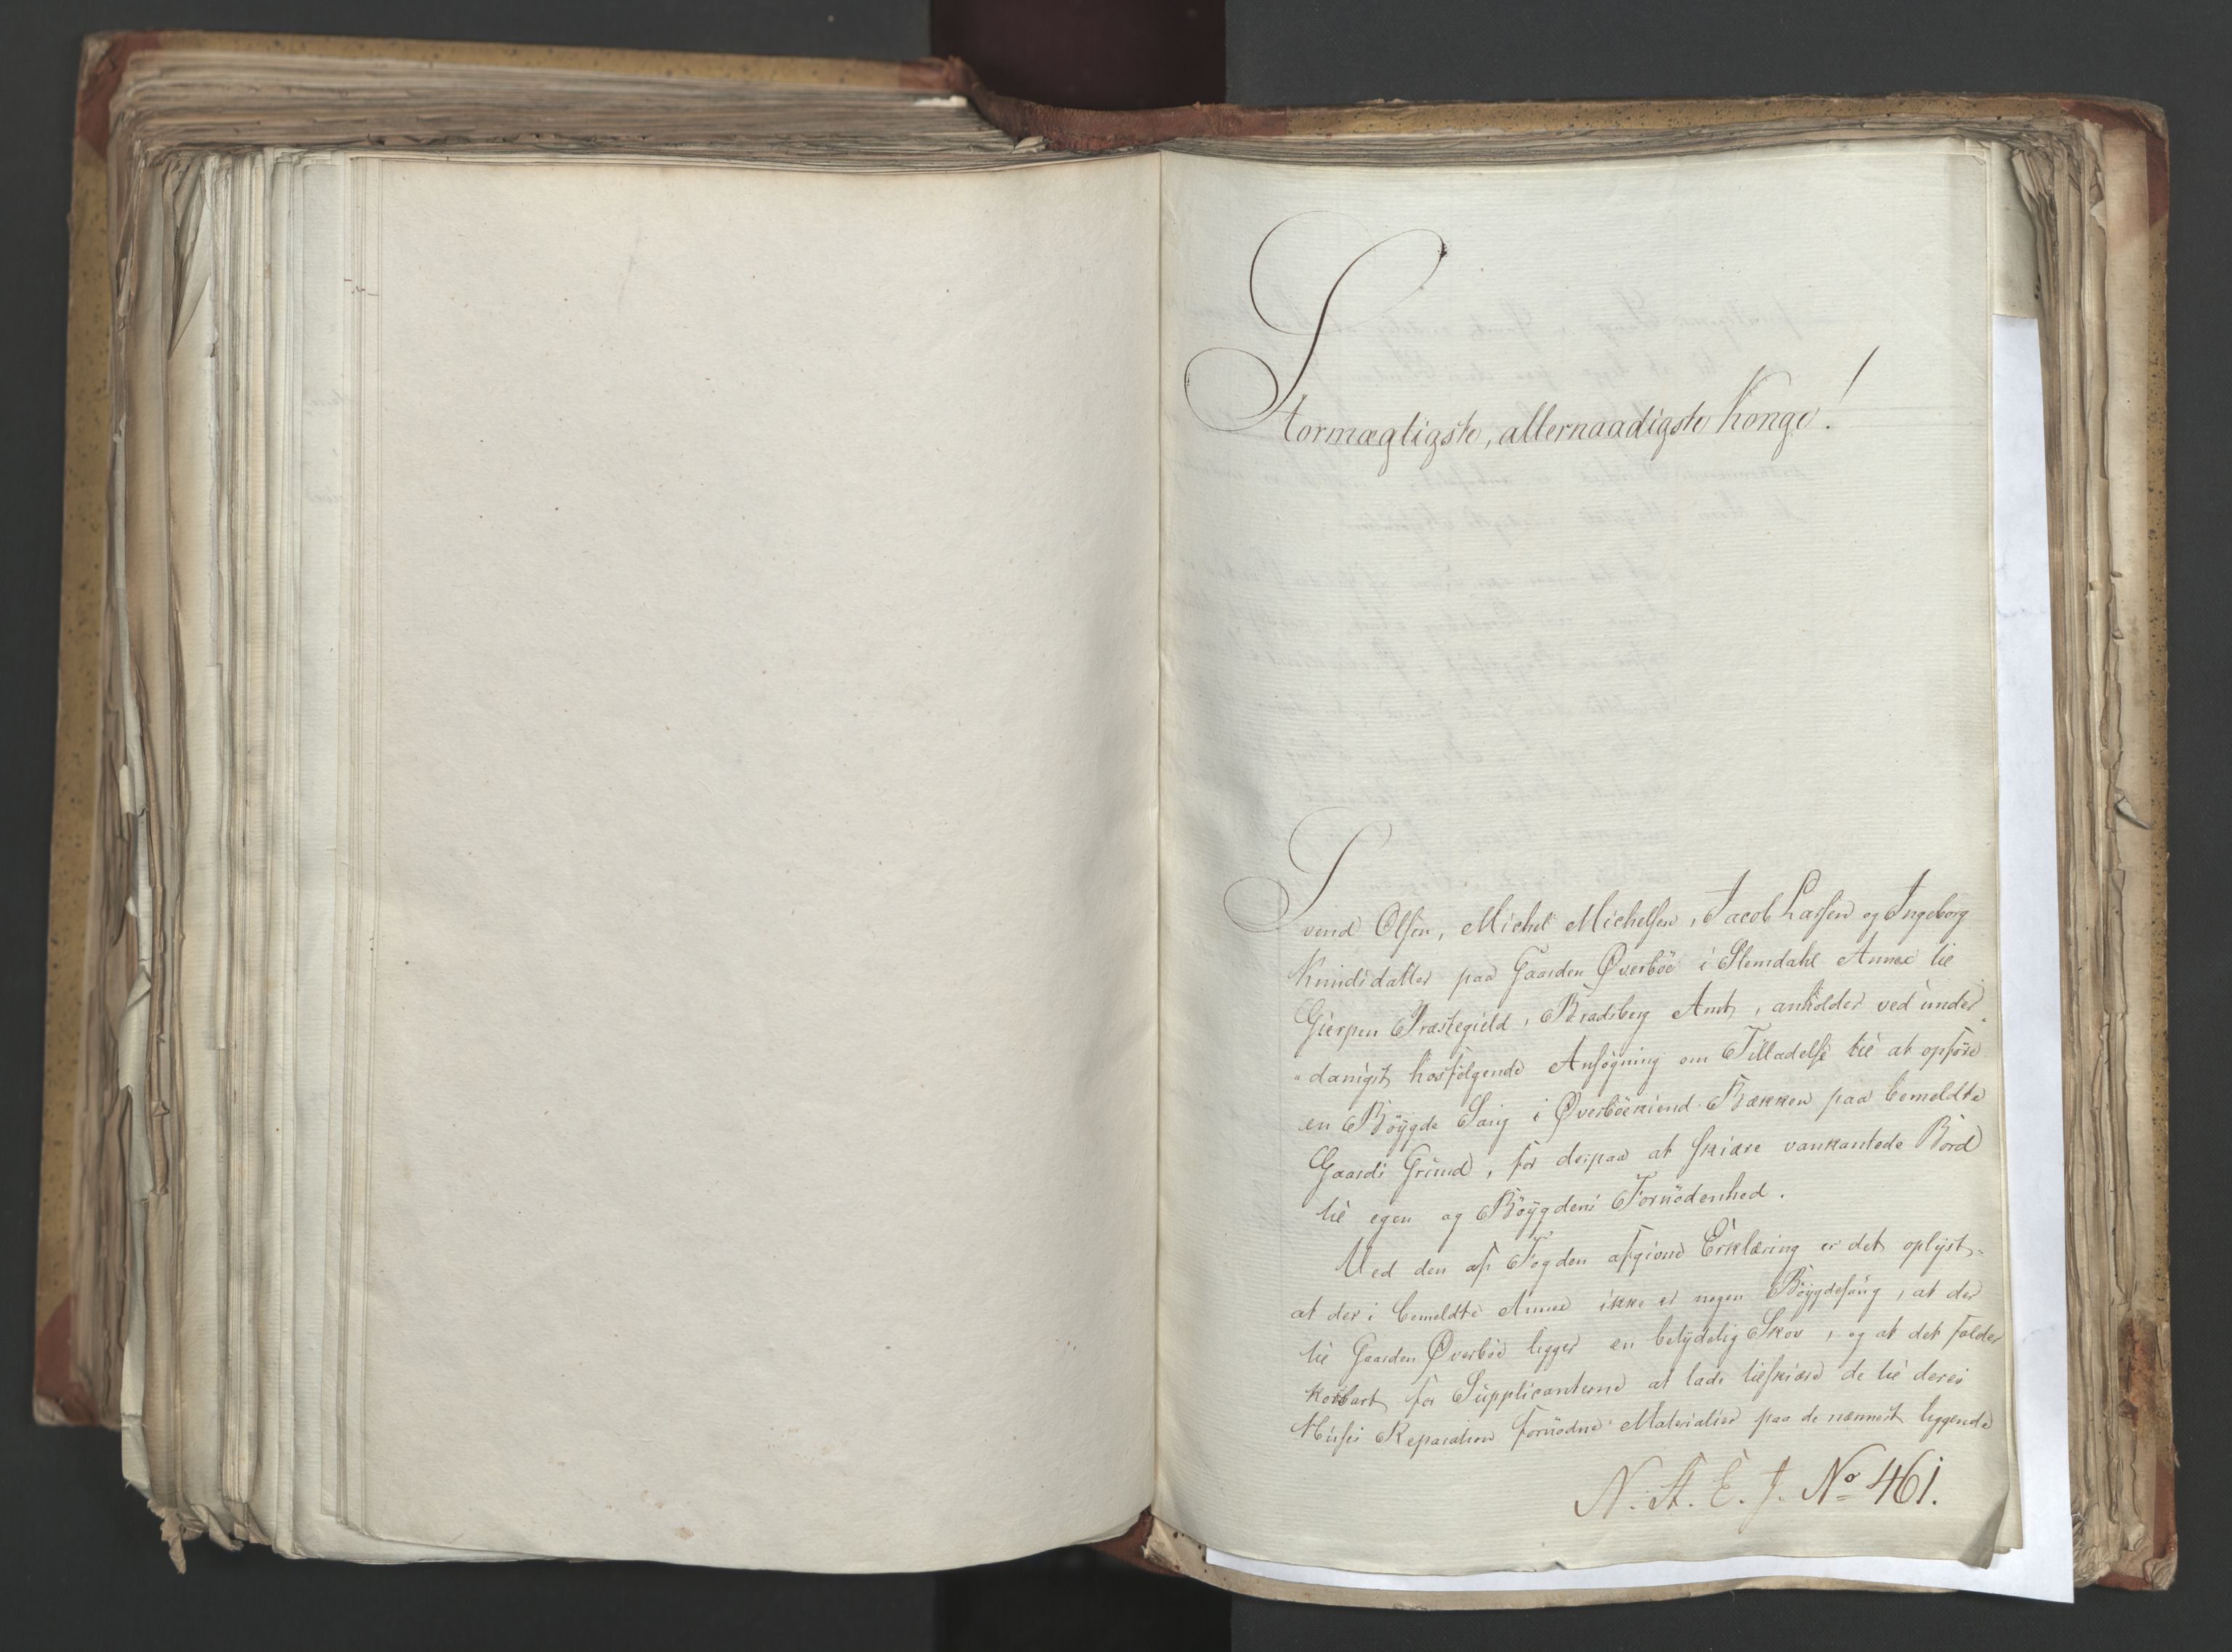 Stormægtigste, allernaadigste Konge!
Svend Olsen, Michel Michelsen, Jacob Larsen og Ingeborg
Knudsdatter paa Gaarden Øverböe i Slemdahl Annex til
Gierpen Præstegield, Bradsberg Amt, anholder ved under-
"danigst hosfölgende Ansögning om Tilladelse til at opföre
en Böygde Saug i Øverböekiend Bækken paa bemeldte
Gaards Grund, for derpaa at skiære vankantede Bord
til egen og Böygdens Fornödenhed.
Ved den af Fogden afgivne Erklæring er det oplyst,
at der i bemeldte Annex ikke er nogen Böygdesaug, at der
til Gaarden Øverböe ligger en betydelig Skov, og at det falder
kostbart for Supplicanterne at lade tilskiære de til deres
Huses Reparation fornödne Materialier paa de nærmest liggende
N. A. E. J. No 461.